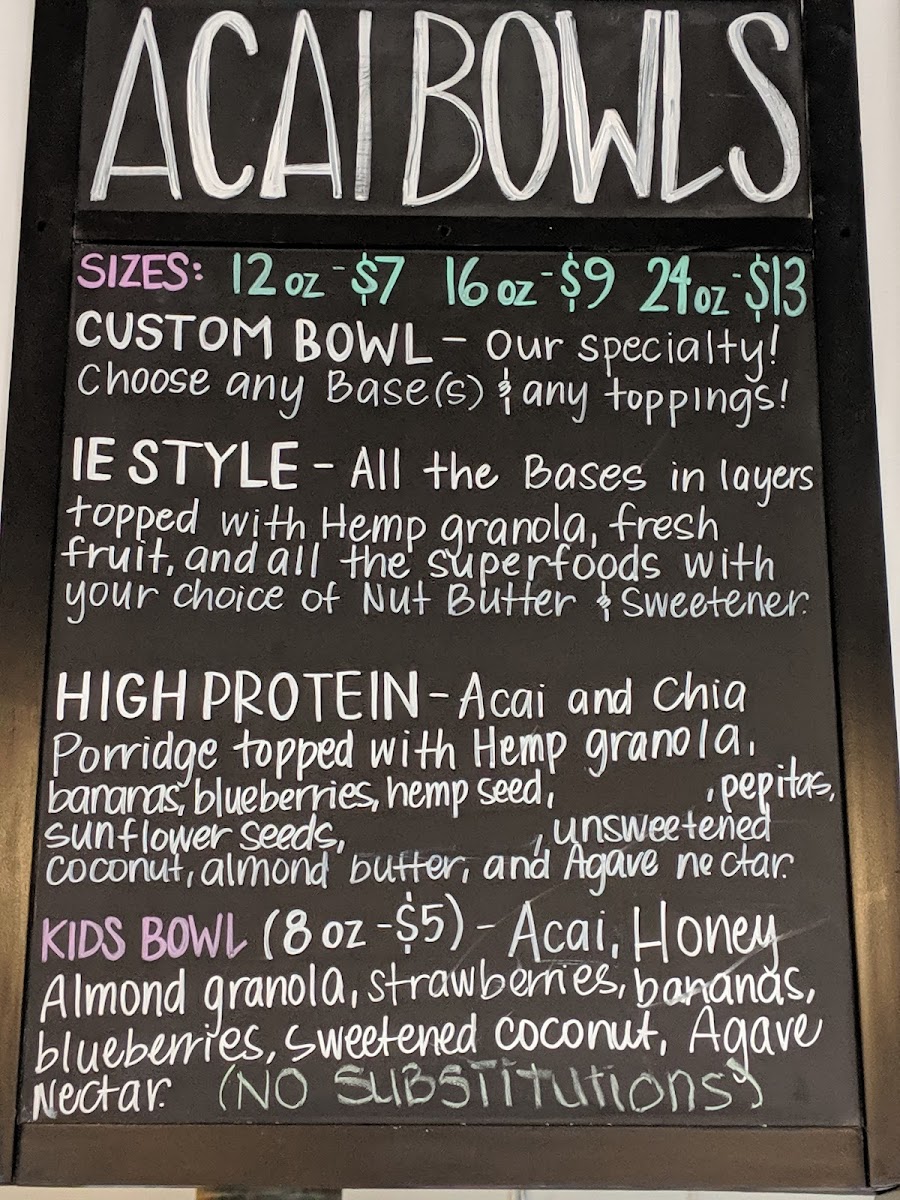 ACAI BOWLS
SIZES: 12 oz - $7 16 oz - $9 24 oz - $13
CUSTOM BOWL - Our specialty!
Choose any Base(s) & any toppings!
IE STYLE - All the Bases in layers
topped with Hemp granola, fresh
fruit, and all the superfoods with
your choice of Nut Butter & Sweetener.
HIGH PROTEIN - Acai and Chia
Porridge topped with Hemp granola,
bananas, blueberries, hemp seed, , pepitas,
sunflower seeds, , unsweetened
coconut, almond butter, and Agave nectar.
KIDS BOWL (8 oz - $5) - Acai, Honey
Almond granola, strawberries, bananas,
blueberries, sweetened coconut, Agave
Nectar. (NO SUBSTITUTIONS)